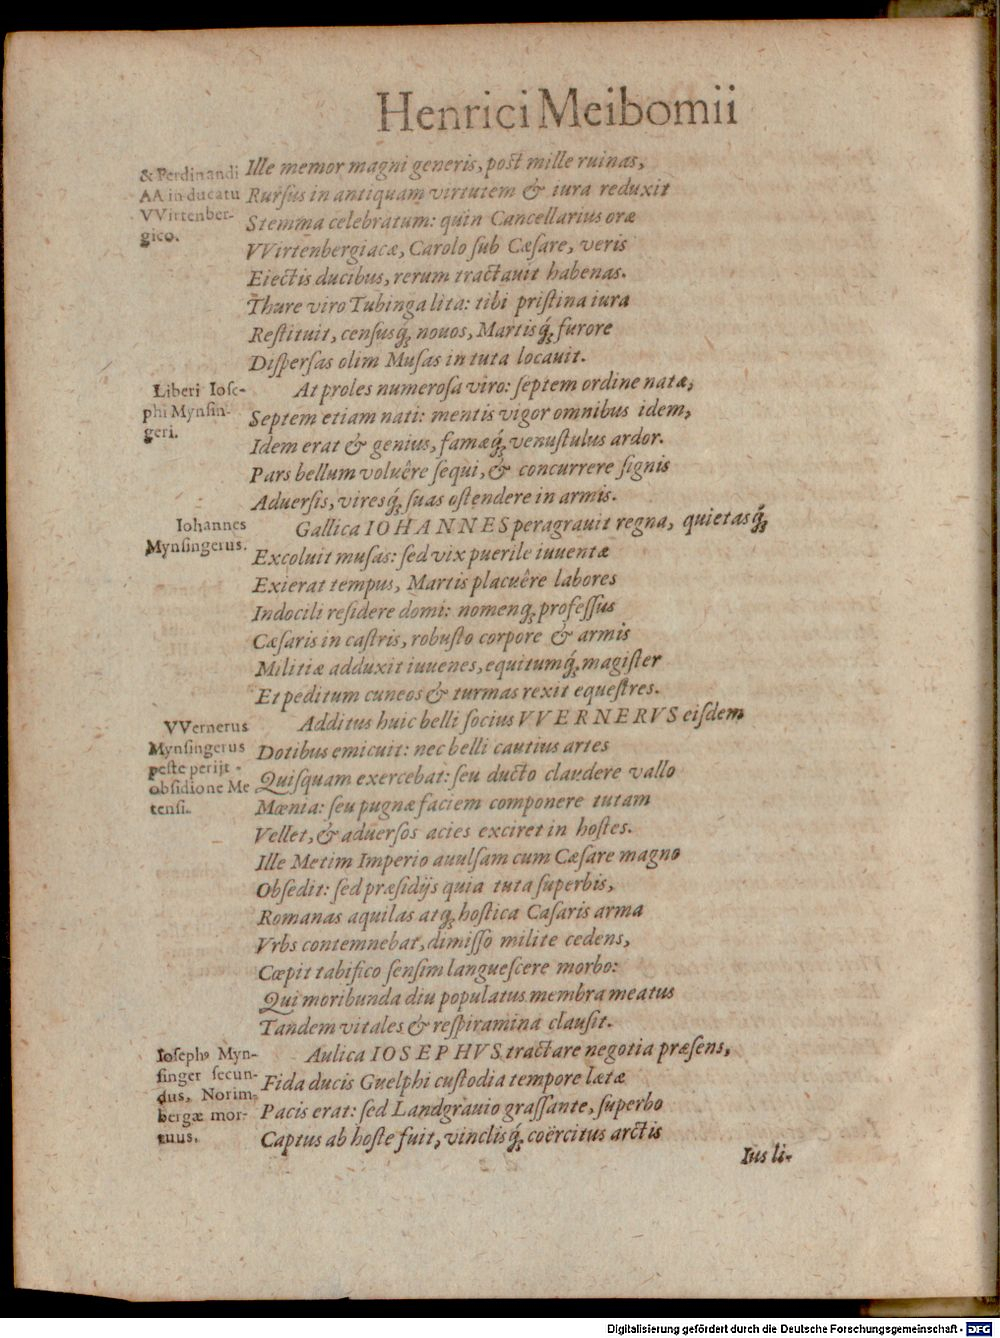 Henrici Meibomii
& Ferdinandi
AA in ducatu
VVirtenber-
gico.
Ille memor magni generis, post mille ruinas,
Rursus in antiquam virtutem & iura reduxit
Stemma celebratum: quin Cancellarius oræ
VVirtenbergiacæ, Carolo sub Cæsare, veris
Eiectis ducibus, rerum tractauit habenas.
Thure viro Tubinga lita: tibi pristina iura
Restituit, censusq́; nouos, Martisq́; furore
Dispersas olim Musas in tuta locauit.
Liberi Iose-
phi Mynsin-
geri.
At proles numerosa viro: septem ordine natæ,
Septem etiam nati: mentis vigor omnibus idem,
Idem erat & genius, famæq́; venustulus ardor.
Pars bellum voluêre sequi, & concurrere signis
Aduersis, viresq́; suas ostendere in armis.
Iohannes
Mynsingerus.
Gallica IOHANNES peragrauit regna, quietasq́;
Excoluit musas: sed vix puerile iuuentæ
Exierat tempus, Martis placuêre labores
Indocili residere domi: nomenq; professus
Cæsaris in castris, robusto corpore & armis
Militiæ adduxit iuuenes, equitumq́; magister
Et peditum cuneos & turmas rexit equestres.
VVernerus
Mynsingerus
peste perijt
obsidione Me
tensi.
Additus huic belli socius VVERNERVS eisdem
Dotibus emicuit: nec belli cautius artes
Quisquam exercebat: seu ducto claudere vallo
Mœnia: seu pugnæ faciem componere tutam
Vellet, & aduersos acies exciret in hostes.
Ille Metim Imperio auulsam cum Cæsare magno
Obsedit: sed præsidijs quia tuta superbis,
Romanas aquilas atq; hostica Cæsaris arma
Vrbs contemnebat, dimisso milite cedens,
Cœpit tabifico sensim languescere morbo:
Qui moribunda diu populatus membra meatus
Tandem vitales & respiramina clausit.
Ioseph9 Myn-
singer secun-
dus, Norim-
bergæ mor-
tuus.
Aulica IOSEPHVS tractare negotia præsens,
Fida ducis Guelphi custodia tempore lætæ
Pacis erat: sed Landgrauio grassante, superbo
Captus ab hoste fuit, vinclisq́; coërcitus arctis
Ius li-
Digitalisierung gefördert durch die Deutsche Forschungsgemeinschaft - DFG